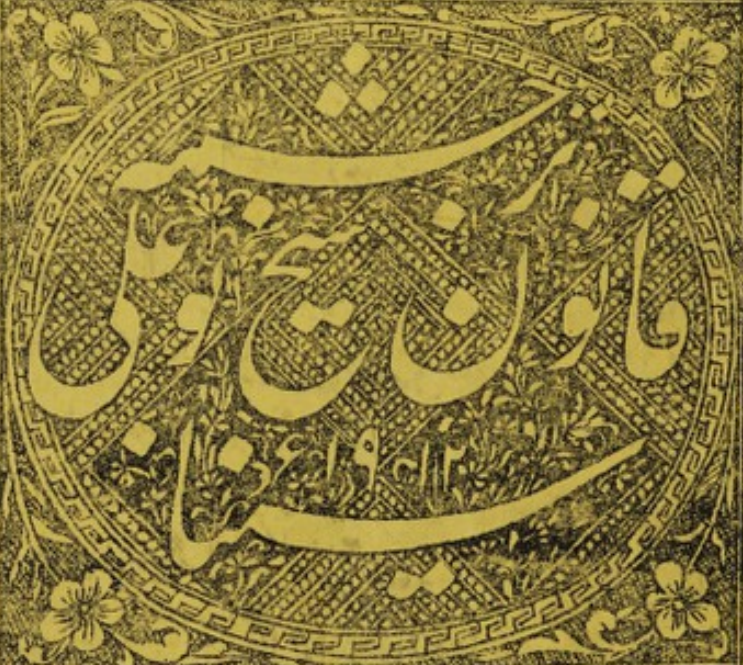 ترجمہ
قانون شیخ بوعلی
سینا ۱۹۱۲ء